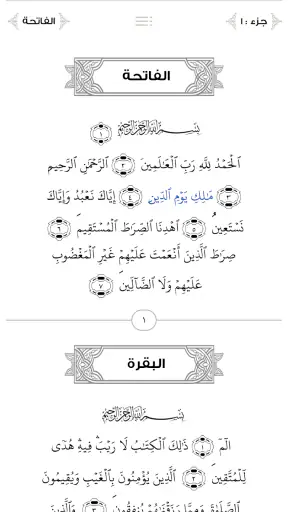 جزء : ١ الفاتحة
الفاتحة
بِسْمِ اللَّهِ الرَّحْمَٰنِ الرَّحِيمِ ١
الْحَمْدُ لِلَّهِ رَبِّ الْعَٰلَمِينَ ٢ الرَّحْمَٰنِ الرَّحِيمِ
٣ مَٰلِكِ يَوْمِ الدِّينِ ٤ إِيَّاكَ نَعْبُدُ وَإِيَّاكَ
نَسْتَعِينُ ٥ اهْدِنَا الصِّرَٰطَ الْمُسْتَقِيمَ ٦
صِرَٰطَ الَّذِينَ أَنْعَمْتَ عَلَيْهِمْ غَيْرِ الْمَغْضُوبِ
عَلَيْهِمْ وَلَا الضَّآلِّينَ ٧
١
البقرة
بِسْمِ اللَّهِ الرَّحْمَٰنِ الرَّحِيمِ
الٓمٓ ١ ذَٰلِكَ الْكِتَٰبُ لَا رَيْبَ ۛ فِيهِ ۛ هُدًى
لِّلْمُتَّقِينَ ٢ الَّذِينَ يُؤْمِنُونَ بِالْغَيْبِ وَيُقِيمُونَ
الصَّلَوٰةَ وَمِمَّا رَزَقْنَٰهُمْ يُنفِقُونَ ٣ وَالَّذِينَ